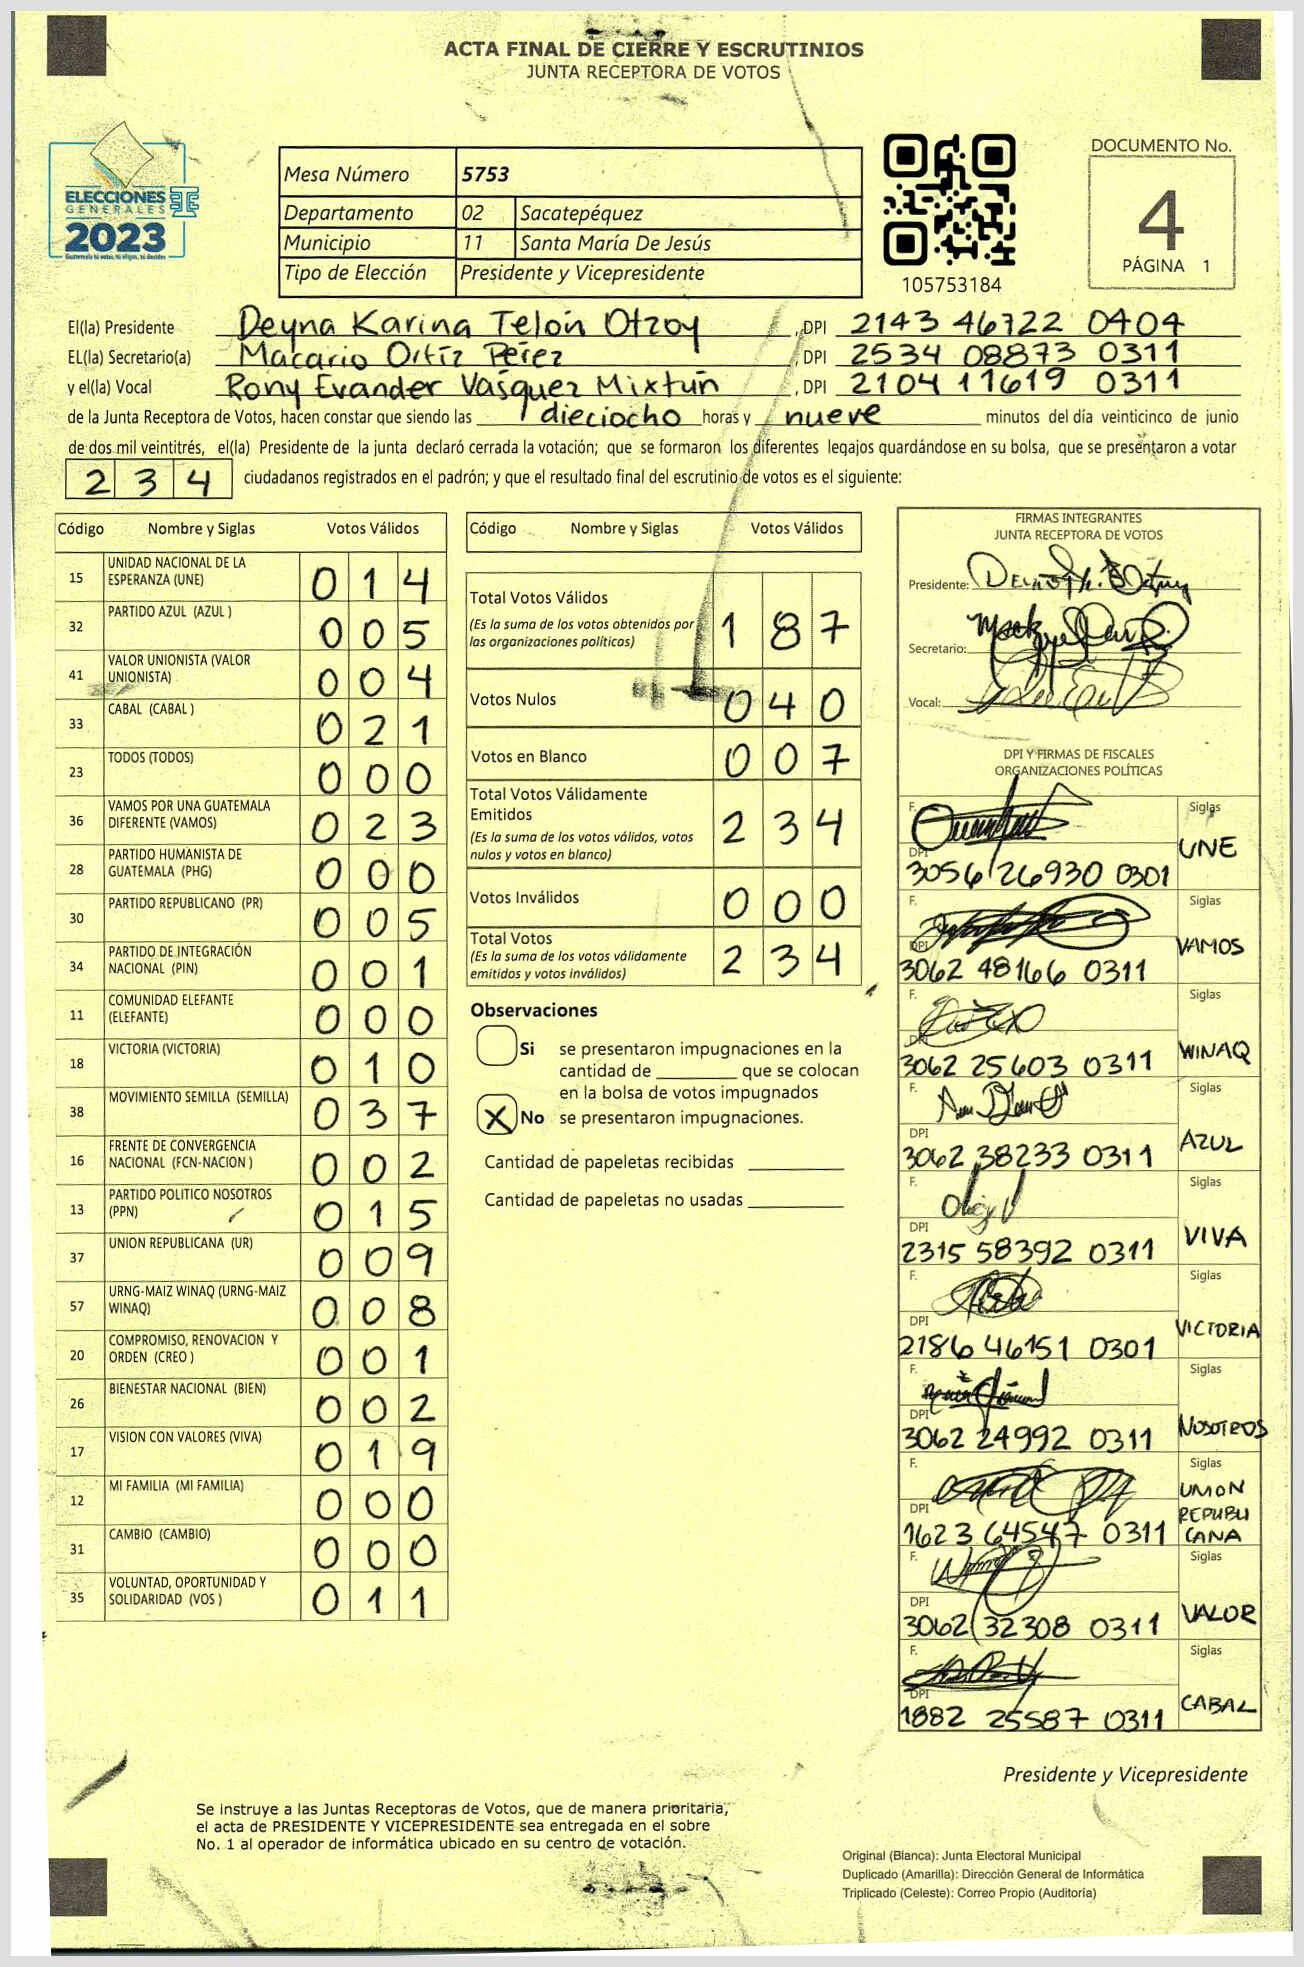 ACTA FINAL DE CIERRE Y ESCRUTINIOS
JUNTA RECEPTORA DE VOTOS
ELECCIONES
GENERALES
2023
Guatemala tú votas, tú eliges, tú decides
Mesa Número 5753
Departamento 02 Sacatepéquez
Municipio 11 Santa María De Jesús
Tipo de Elección Presidente y Vicepresidente
105753184
DOCUMENTO No.
4
PÁGINA 1
El(la) Presidente Deyna Karina Telón Otzoy, DPI 2143 46722 0404
EL(la) Secretario(a) Macario Ortíz Pérez, DPI 2534 08873 0311
y el(la) Vocal Rony Evander Vásquez Mixtún, DPI 2104 11619 0311
de la Junta Receptora de Votos, hacen constar que siendo las dieciocho horas y nueve minutos del día veinticinco de junio
de dos mil veintitrés, el(la) Presidente de la junta declaró cerrada la votación; que se formaron los diferentes legajos quardándose en su bolsa, que se presentaron a votar
234 ciudadanos registrados en el padrón; y que el resultado final del escrutinio de votos es el siguiente:
Código Nombre y Siglas Votos Válidos
15 UNIDAD NACIONAL DE LA ESPERANZA (UNE) 014
32 PARTIDO AZUL (AZUL ) 005
41 VALOR UNIONISTA (VALOR UNIONISTA) 004
33 CABAL (CABAL ) 021
23 TODOS (TODOS) 000
36 VAMOS POR UNA GUATEMALA DIFERENTE (VAMOS) 023
28 PARTIDO HUMANISTA DE GUATEMALA (PHG) 000
30 PARTIDO REPUBLICANO (PR) 005
34 PARTIDO DE INTEGRACIÓN NACIONAL (PIN) 001
11 COMUNIDAD ELEFANTE (ELEFANTE) 000
18 VICTORIA (VICTORIA) 010
38 MOVIMIENTO SEMILLA (SEMILLA) 037
16 FRENTE DE CONVERGENCIA NACIONAL (FCN-NACION ) 002
13 PARTIDO POLITICO NOSOTROS (PPN) 015
37 UNION REPUBLICANA (UR) 009
57 URNG-MAIZ WINAQ (URNG-MAIZ WINAQ) 008
20 COMPROMISO, RENOVACION Y ORDEN (CREO ) 001
26 BIENESTAR NACIONAL (BIEN) 002
17 VISION CON VALORES (VIVA) 019
12 MI FAMILIA (MI FAMILIA) 000
31 CAMBIO (CAMBIO) 000
35 VOLUNTAD, OPORTUNIDAD Y SOLIDARIDAD (VOS ) 011
Código Nombre y Siglas Votos Válidos
Total Votos Válidos 187
(Es la suma de los votos obtenidos por
las organizaciones políticas)
Votos Nulos 040
Votos en Blanco 007
Total Votos Válidamente
Emitidos 234
(Es la suma de los votos válidos, votos
nulos y votos en blanco)
Votos Inválidos 000
Total Votos 234
(Es la suma de los votos válidamente
emitidos y votos inválidos)
Observaciones
Si se presentaron impugnaciones en la
cantidad de ________ que se colocan
en la bolsa de votos impugnados
X No se presentaron impugnaciones.
Cantidad de papeletas recibidas
Cantidad de papeletas no usadas
FIRMAS INTEGRANTES
JUNTA RECEPTORA DE VOTOS
Presidente:
Secretario:
Vocal:
DPI Y FIRMAS DE FISCALES
ORGANIZACIONES POLÍTICAS
F. Siglas
DPI UNE
3056 26930 0301
F. Siglas
DPI VAMOS
3062 48166 0311
F. Siglas
DPI WINAQ
3062 25603 0311
F. Siglas
DPI AZUL
3062 38233 0311
F. Siglas
DPI VIVA
2315 58392 0311
F. Siglas
DPI VICTORIA
2186 46151 0301
F. Siglas
DPI NOSOTROS
3062 24992 0311
F. Siglas
DPI UNION REPUBLICANA
1623 64547 0311
F. Siglas
DPI VALOR
3062 32308 0311
F. Siglas
DPI CABAL
1882 25587 0311
Presidente y Vicepresidente
Se instruye a las Juntas Receptoras de Votos, que de manera prioritaria,
el acta de PRESIDENTE Y VICEPRESIDENTE sea entregada en el sobre
No. 1 al operador de informática ubicado en su centro de votación.
Original (Blanca): Junta Electoral Municipal
Duplicado (Amarilla): Dirección General de Informática
Triplicado (Celeste): Correo Propio (Auditoría)